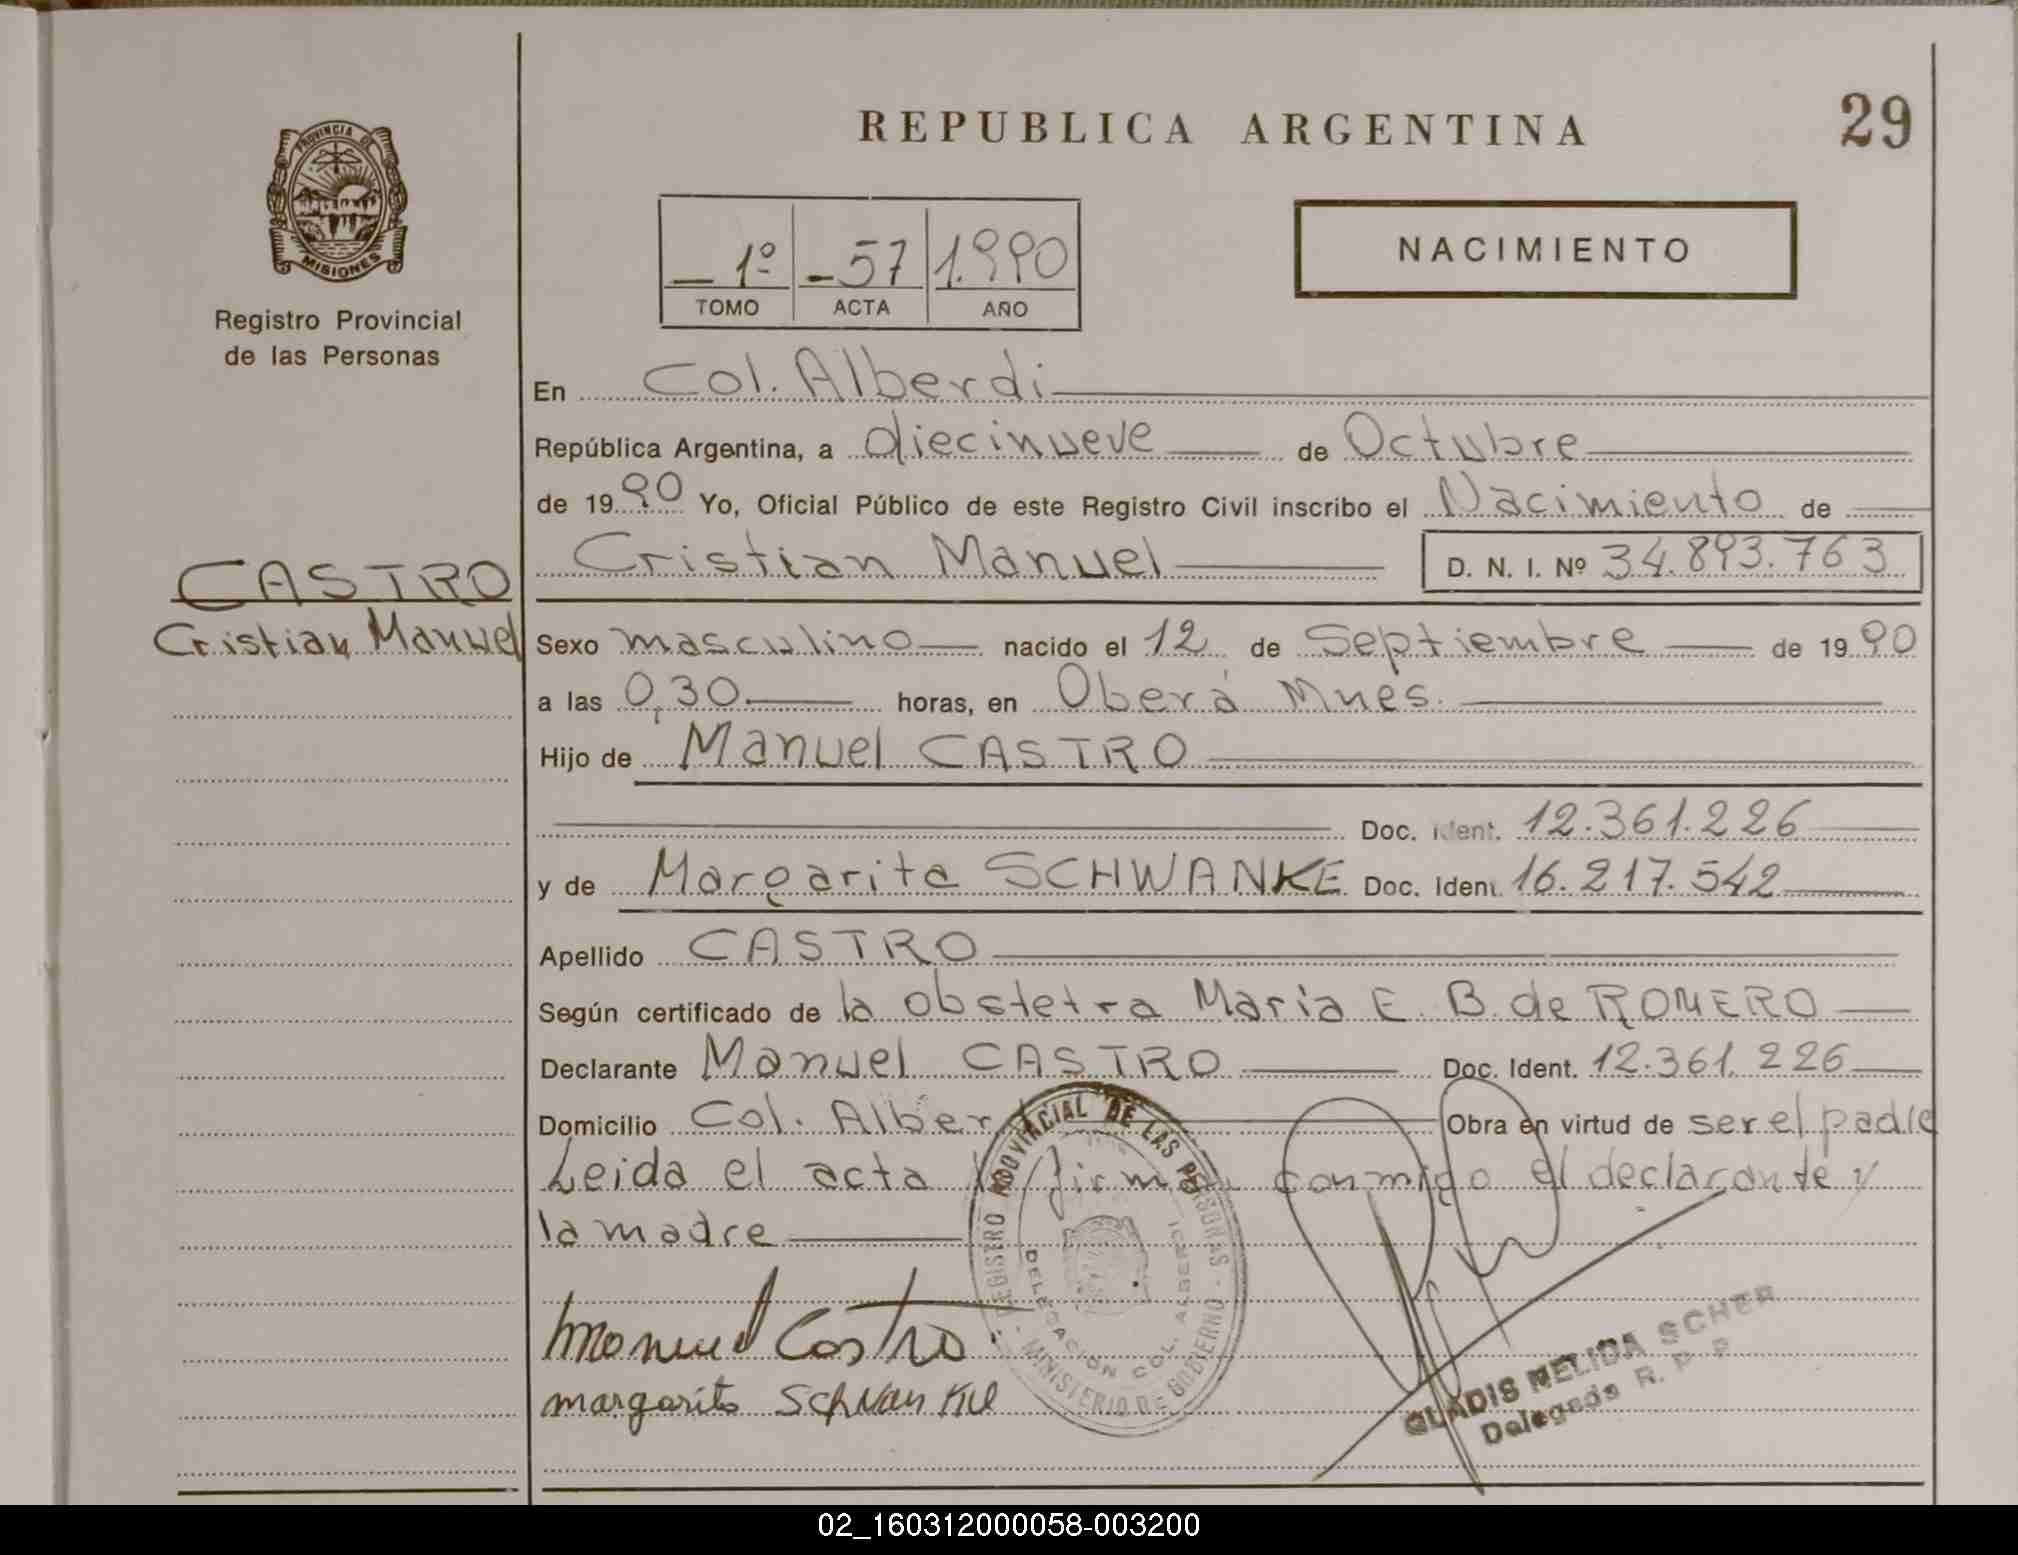 REPUBLICA ARGENTINA
29
PROVINCIA DE
MISIONES
Registro Provincial
de las Personas
1º - 57 1.990
TOMO ACTA AÑO
NACIMIENTO
En Col. Alberdi
República Argentina, a diecinueve de Octubre
de 1990 Yo, Oficial Público de este Registro Civil inscribo el Nacimiento de
Cristian Manuel D. N. I. Nº 34.893.763
CASTRO
Cristian Manuel
Sexo masculino nacido el 12 de Septiembre de 1990
a las 0,30 horas, en Oberá Mnes.
Hijo de Manuel CASTRO
Doc. Ident. 12.361.226
y de Margarita SCHWANKE Doc. Ident. 16.217.542
Apellido CASTRO
Según certificado de la obstetra Maria E. B. de ROMERO
Declarante Manuel CASTRO Doc. Ident. 12.361.226
Domicilio Col. Alber Obra en virtud de ser el padre
Leida el acta firman conmigo el declarante y
la madre
Manuel Castro
margarita Schwanke
REGISTRO PROVINCIAL DE LAS PERSONAS - MINISTERIO DE GOBIERNO -
DELEGACIÓN COL. ALBERDI
GLADIS MELIDA SCHER
Delegada R. P. P
02_160312000058-003200